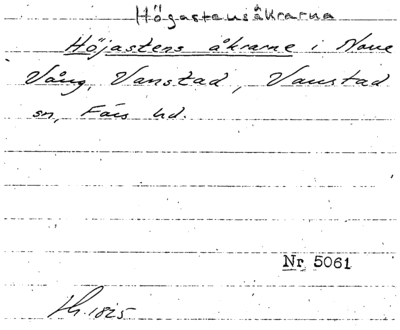 Högastensåkrarna
Höjastens åkrarne i Norre
Vång, Vanstad, Vanstad
sn, Färs hd.
Nr 5061
1825